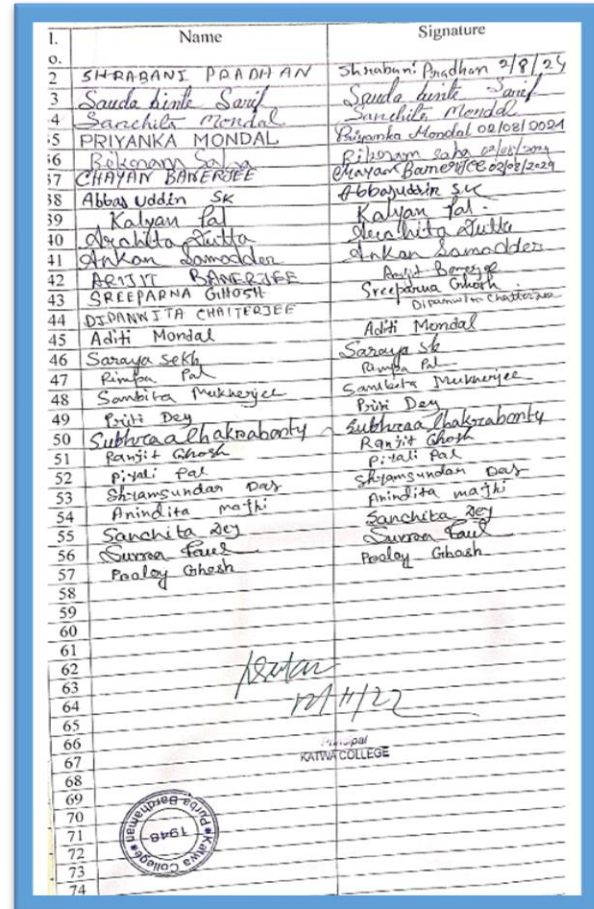 l. Name Signature
o.
2 SHRABANI PRADHAN Shrabani Pradhan 2/8/24
3 Sauda binte Sarif Sauda binte Sarif
4 Sanchita Mondal Sanchita Mondal
5 PRIYANKA MONDAL Priyanka Mondal 02/08/2024
6 Saha Saha 02/08/2024
37 CHAYAN BANERJEE Chayan Banerjee 02/08/2024
38 Abbas Uddin SK Abbasuddin SK
39 Kalyan Pal Kalyan Pal.
40 Dutta Dutta
41 Ankan Samadder Ankan Samadder
42 ARIJIT BANERJEE Arijit Banerjee
43 SREEPARNA GHOSH Sreeparna Ghosh
44 DIPANWITA CHATTERJEE Dipanwita Chatterjee
45 Aditi Mondal Aditi Mondal
46 Saraya Sekh Saraya Sk
47 Rimpa Pal Rimpa Pal
48 Sambita Mukherjee Sambita Mukherjee
49 Priti Dey Priti Dey
50 Subhraa Chakraborty Subhraa Chakraborty
51 Ranjit Ghosh Ranjit Ghosh
52 Piyali Pal Piyali Pal
53 Shyamsundar Das Shyamsundar Das
54 Anindita majhi Anindita majhi
55 Sanchita Dey Sanchita Dey
56 Suman Paul Suman Paul
57 Ghosh Ghosh
58
59
60
61
62
63
64 12/11/22
65
66 Principal
67 KATWA COLLEGE
68
69
70
71
72
73
74
Katwa College Purba Bardhaman
1948